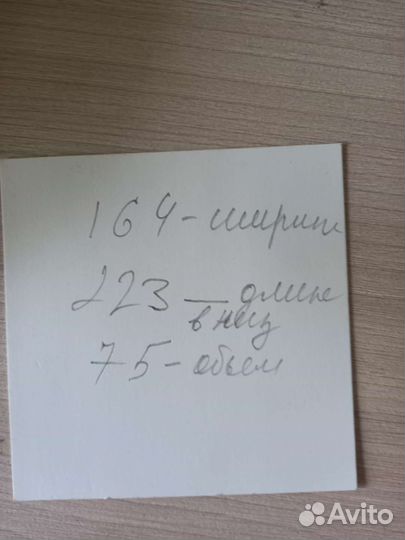 164 - ширин
223 — длине
в низ
75 - обьем
Avito